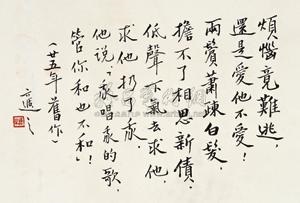 煩惱竟難逃，
還是愛他不愛！
兩鬢蕭疎白髮，
擔不了相思新債。
低聲下氣去求他，
求他扔了我。
他說，「我唱我的歌，
管你和也不和！」
（廿五年舊作）
適之